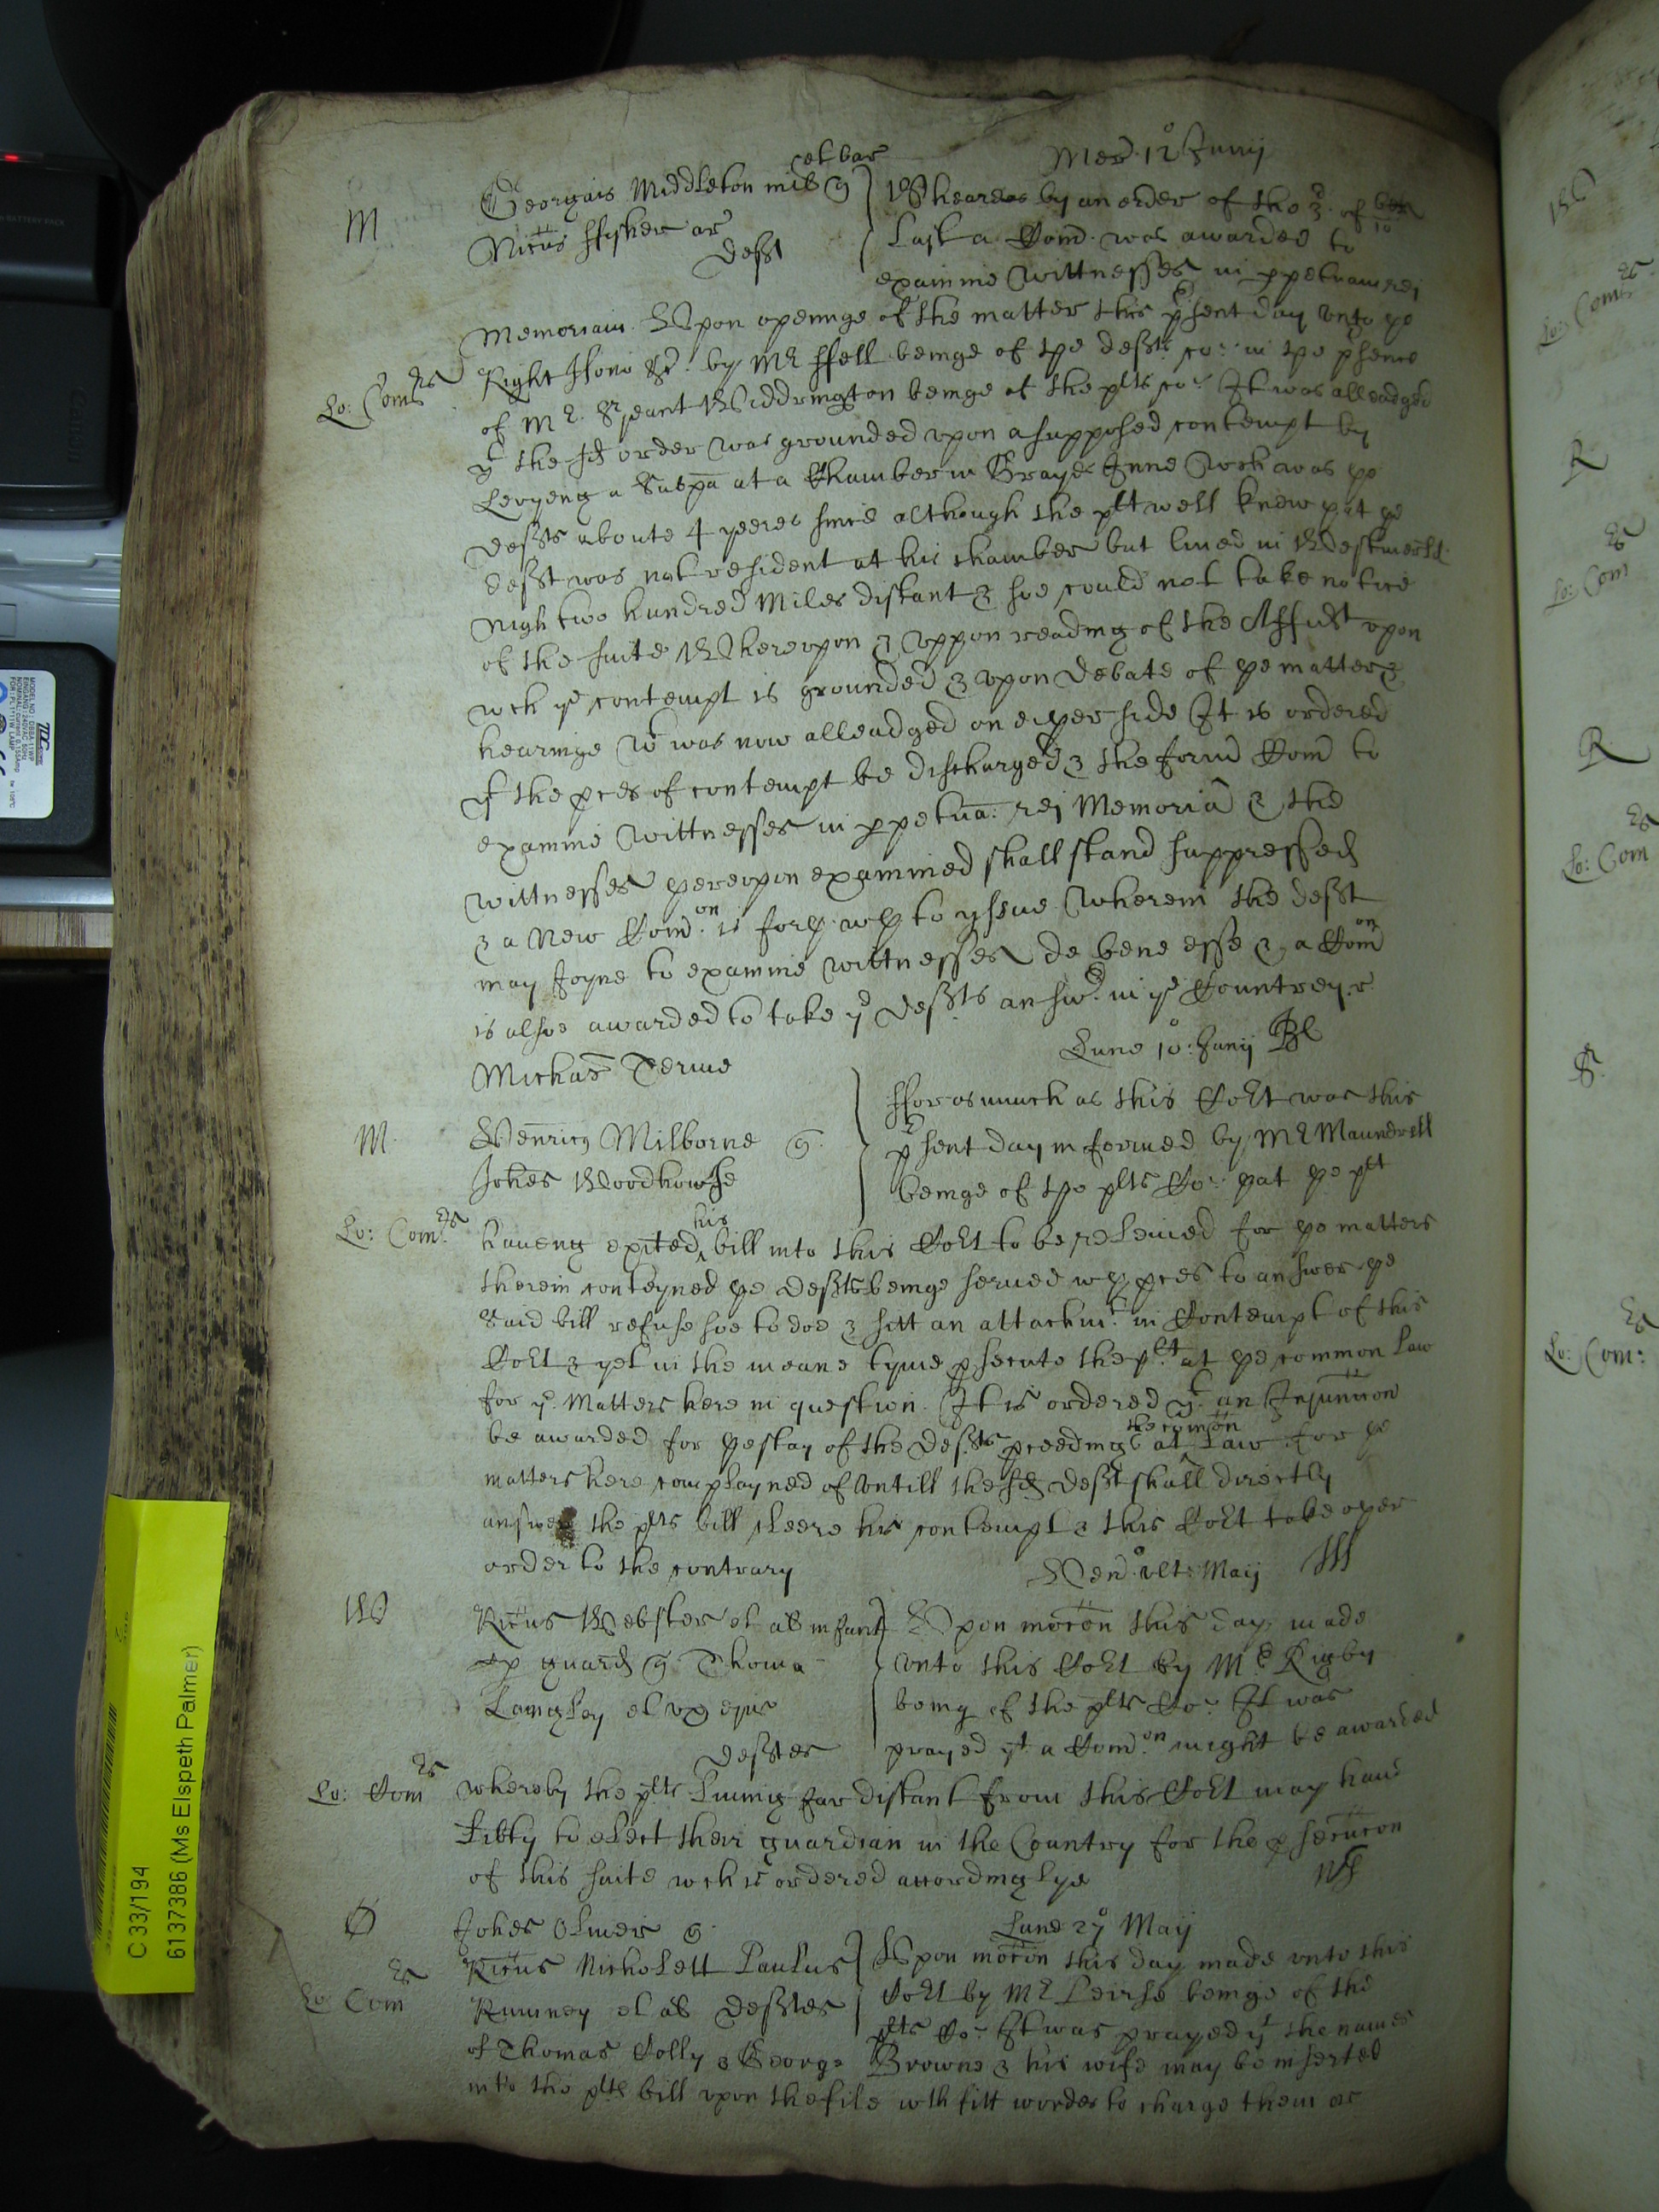 Mer. 12° Junij
M
Georgius Middleton mil et bar
Ricus ffysher ar
Defts
Whereas by an order of the 3. of
last a Comd. was awarded to
examine Wittnesses in ppetuam rei
Memoriam Upon openinge of the matter this psent day unto ye
Lo: Comrs
Right Hono &c. by Mr ffell beinge of the defts co: in the psence
of Mr. Srjeant Widdrington beinge of the plts co: It was alleadged
yt the sd order was grounded vpon a supposed contempt by
Leveyng a Subpa at a Chamber in Grayes Inne wch was ye
Defts aboute 4 yeeres since although the plt well knew yat ye
deft was not resident at his chamber but lived in Westmerld
nigh two hundred Miles distant & soe could not take notice
of the suite Whereupon & vppon reading of the Affidt vpon
wch ye contempt is grounded & vpon debate of ye matter &
hearinge wt was now alleadged on eiyer side It is ordered
yt the pces of contempt be discharged & the form Comd to
examine Wittnesses in ppetua: rej Memoria & the
wittnesses yereupon examined shall stand suppressed
& a new Comd.on is forth wth to yssue wherein the deft
may Joyne to examine wittnesses de bene esse & a Comdon
is alsoe awarded to take ye defts answ. in ye Countrey
Lune 10: Junij
Michas Terme
M.
Henricus Milborne
Johes Woodhowse
fforasmuch as this Cort was this
psent day informed by Mr Maunerell
beinge of the plts Co: yat ye plt
Lo: Comrs
haveng exited his bill into this Cort to be releived for ye matters
therein conteyned ye defts beinge served wth pces to answer ye
said bill refuse soe to doe & sitt an attachmt in Contempt of this
Cort & yet in the meane tyme psecute the plt at ye common Law
for ye Matters here in question. It is ordered yt an Injuncion
be awarded for ye stay of the defts pceedings at the comon Law for ye
matters here complayned of untill the sd deft shall directly
answere the plts bill cleere his contempt & this Cort take oyer
order to the contrary
Ven. ult: Maij
W
Ricus Webster et al infant
p guard Thoma
Langley et ux ejus
Deftes
Upon mocon this day made
vnto this Cort by Mr Rigby
being of the plts Co: It was
prayed yt a Comd.on might be awarded
Lo: Comrs
whereby the plts living far distant from this Cort may have
libty to elect their guardian in the Country for the psecucon
of this suite wch is ordered accordinglye
O
Johes Oliver
Lune 27 Maij
Lo: Comrs
Ricus Nicholett Paulus
Rumney et al Deftes
Upon mocon this day made vnto this
Cort by Mr beinge of the
plts Co: It was prayed yt the names
of Thomas Colly & George Browne & his wife may be inserted
into the plts bill vpon the file wth fitt wordes to charge them as
C 33/194
6137386 (Ms Elspeth Palmer)